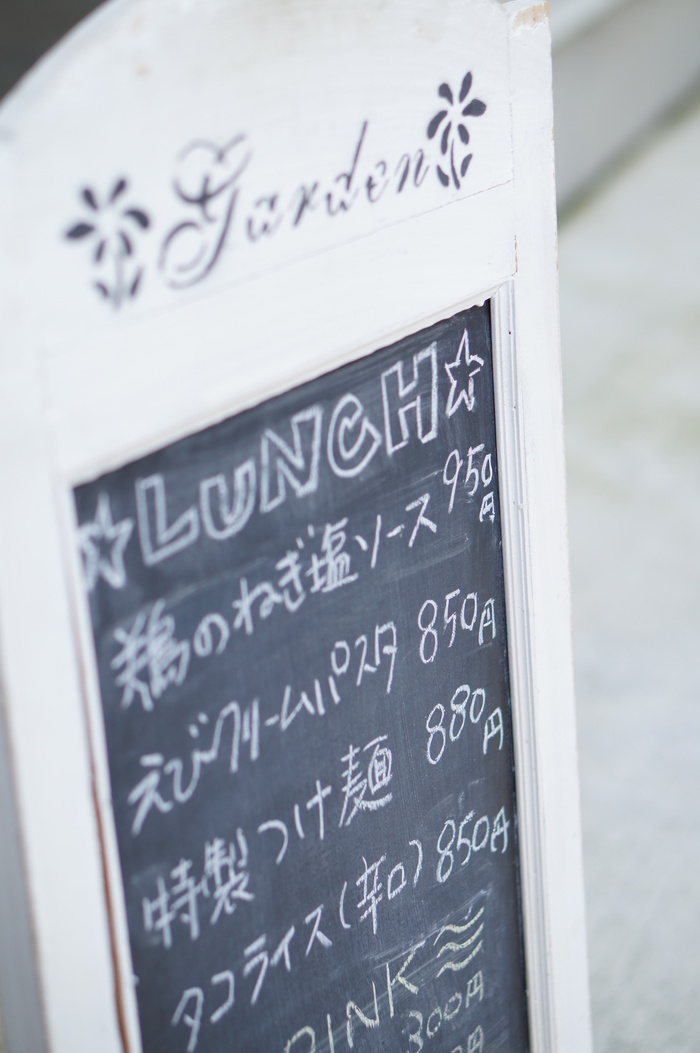 Garden
☆LUNCH☆
鶏のねぎ塩ソース 950円
えびクリームパスタ 850円
特製つけ麺 880円
タコライス(辛口) 850円
RINK
300円
円